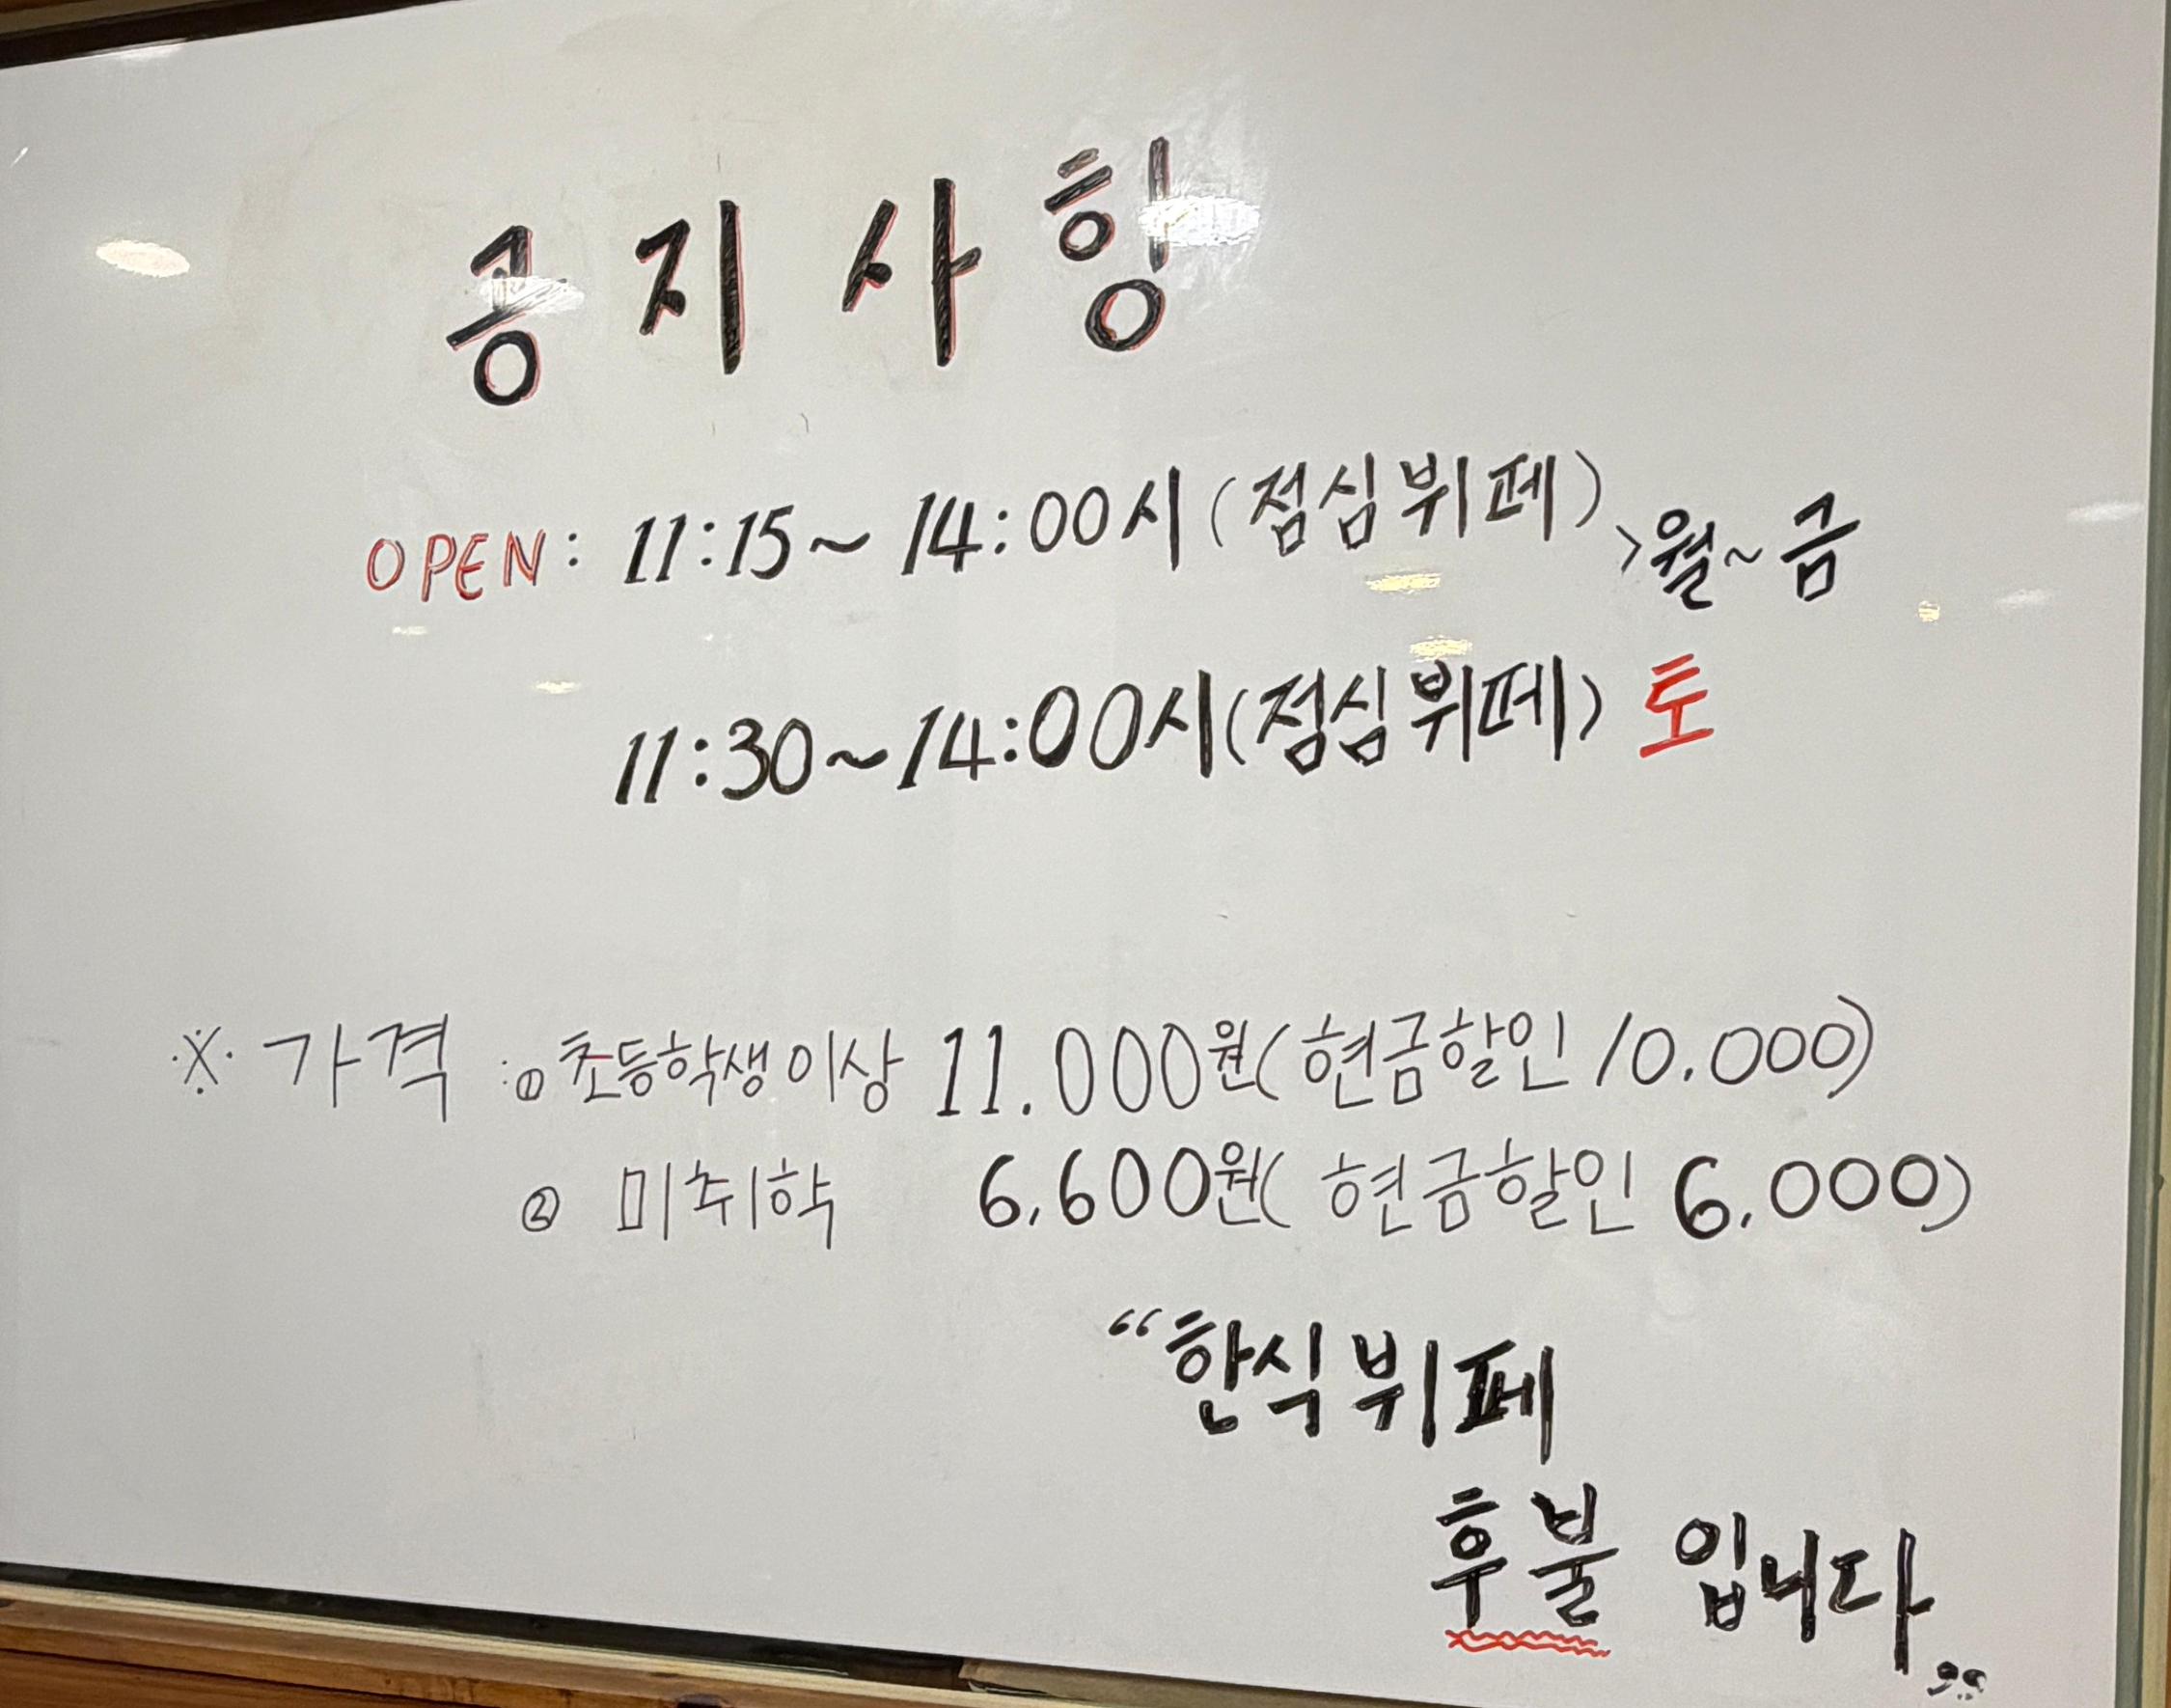 공지사항
OPEN: 11:15~14:00시(점심뷔페)>월~금
11:30~14:00시(점심뷔페) 토
※ 가격 : ① 초등학생이상 11.000원(현금할인 10.000)
② 미취학 6.600원(현금할인 6.000)
“한식뷔페
후불 입니다„